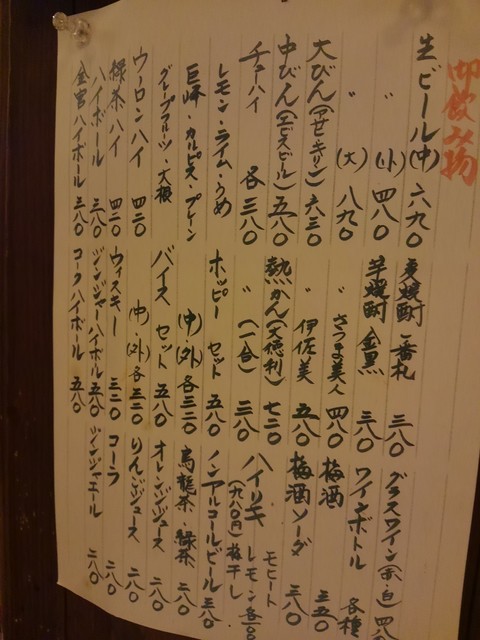 御飲み物
生ビール(中) 六九〇
〃 (小) 四八〇
〃 (大) 八九〇
大びん(アサヒ・キリン) 六三〇
中びん(エビスビール) 五八〇
チューハイ 各三八〇
レモン・ライム・うめ
巨峰・カルピス・プレーン
グレープフルーツ・大根
ウーロンハイ 四二〇
緑茶ハイ 四二〇
ハイボール 三八〇
金宮ハイボール 三八〇
麦焼酎 一番札 三八〇
芋焼酎 金黒 三八〇
〃 さつま美人 四八〇
〃 伊佐美 五八〇
熱かん(大徳利) 七二〇
〃 (一合) 三八〇
ホッピーセット 五八〇
(中)・(外) 各三二〇
バイスセット 五八〇
(中)・(外) 各三二〇
ウィスキー 三二〇
ジンジャーハイボール 五八〇
コークハイボール 五八〇
グラスワイン(赤・白) 四八
ワインボトル 各種
梅酒 三五〇
梅酒ソーダ 三八〇
モヒート
ハイリキ レモン
(九八〇円) 梅干し
ノンアルコールビール 三八〇
烏龍茶・緑茶 二八〇
オレンジジュース 二八〇
りんごジュース 二八〇
コーラ 二八〇
ジンジャエール 二八〇